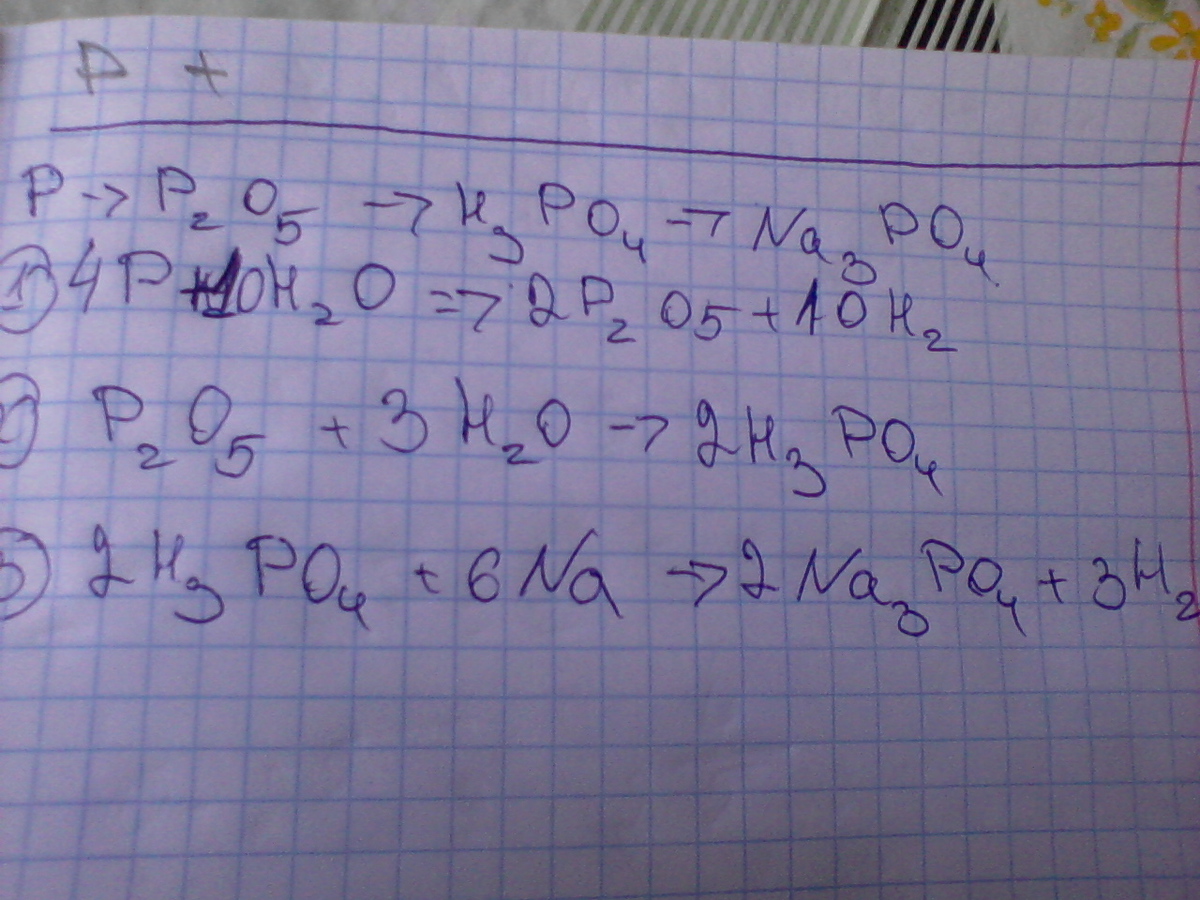 P +
P → P₂O₅ → H₃PO₄ → Na₃PO₄
1) 4P + 10H₂O => 2P₂O5 + 10H₂
2) P₂O₅ + 3H₂O → 2H₃PO₄
3) 2H₃PO₄ + 6Na → 2Na₃PO₄ + 3H₂